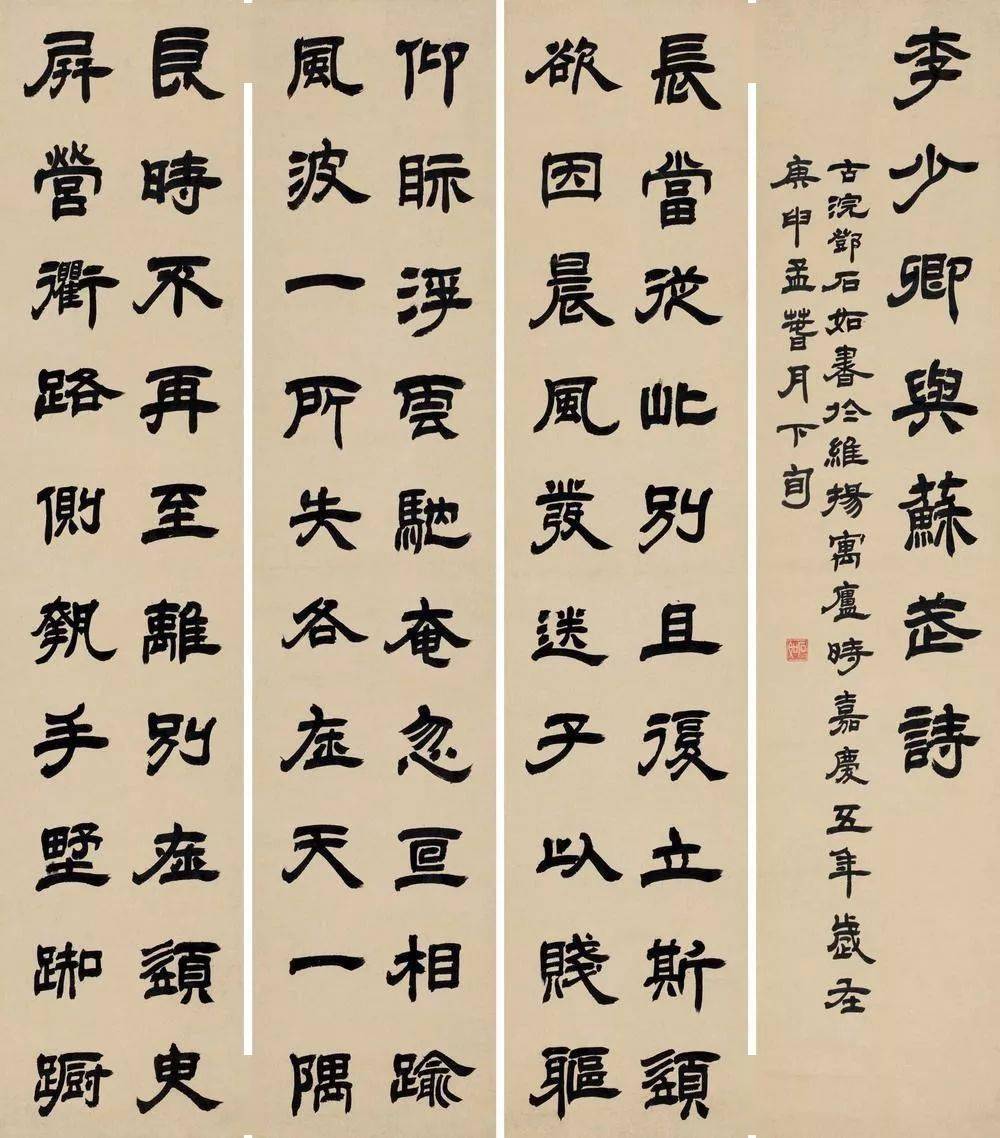 良時不再至離別在須臾
屏營衢路側執手墅踟躕
仰眎浮雲馳奄忽互相踰
風波一所失各在天一隅
長當從此別且復立斯須
欲因晨風發送子以賤軀
李少卿與蘇武詩
古浣鄧石如書於維揚寓廬時嘉慶五年歲在
庚申孟萅月下旬